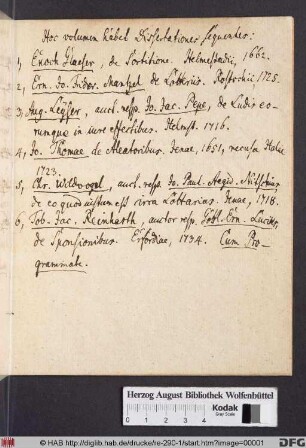 Hoc volumen habet Dissertationes sequentes:
1, Enoch Glaeser, de Sortitione. Helmestadii, 1662.
2, Ern. Jo. Fridr. Mantzel de Lotteriis. Rostochii 1725.
3, Aug. Leyser, auct. resp. Jo. Jac. Pepe, de Ludis eo-
rumque in iure effectibus. Helmst. 1716.
4, Jo. Thomae de Aleatoribus. Jenae, 1651, recusa Halae
1723.
5, Chr. Wildvogel, auct. resp. Jo. Paul. Aegid. Nitschius
de eo quod iustum est circa Lottarias. Jenae, 1718.
6, Tob. Jac. Reinharth, auctor resp. Gottl. Ern.
de Sponsionibus. Erfordiae, 1734. Cum Pro-
grammate.
Herzog August Bibliothek Wolfenbüttel
Kodak
Gray Scale
© HAB http://diglib.hab.de/drucke/re-290-1/start.htm?image=00001
DFG